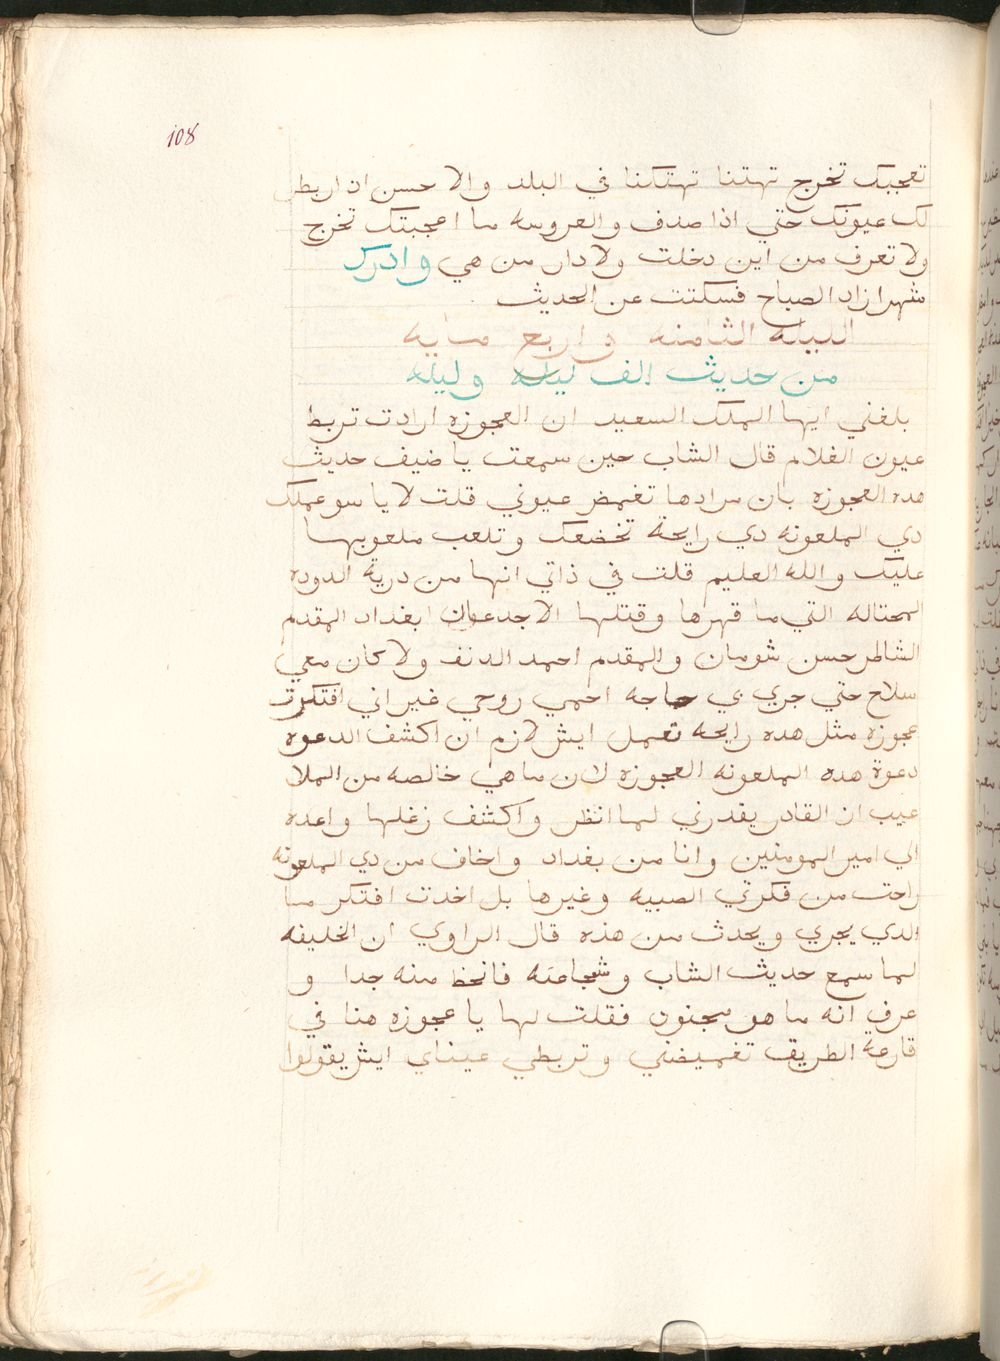 108
تعجبك تخرج تهتنا تهتكنا في البلد والاحسن ان اربطر
لك عيونك حتي اذا صدف والعروسه ما اعجبتك تخرج
ولا تعرف من اين دخلت ولا دار من هي وادرك
شهرازاد الصباح فسكتت عن الحديث
الليله الثامنه واربع مايه
من حديث الف ليله وليله
بلغني ايها الملك السعيد ان العجوزه ارادت تربط
عيون الغلام قال الشاب حين سمعت يا ضيف حديث
هده العجوزه بان مرادها تغمض عيوني قلت لا يا سو عملك
دي الملعونه دي رايحة تخضعك وتلعب ملعوبها
عليك والله العليم قلت في ذاتي انها من درية الدوده
المحتاله التي ما قهرها وقتلها الا جدعان ابغداد المقدم
الشاطر حسن شومان والمقدم احمد الدنف ولا كان معي
سلاح حتي جري ي حاجه احمي روحي غير اني افتكرت
عجوزه مثل هده رايحه تعمل ايش لازم ان اكشف الدعوه
دعوة هده الملعونه العجوزه لان ما هي خالصه من الملا
عيب ان القادر يقدرني لما انظر واكشف زغلها واعده
الي امير المومنين وانا من بغداد واخاف من دي الملعونه
راحت من فكرتي الصبيه وغيرها بل اخدت افتكر ما
الدي يجري ويحدث من هذه قال الراوي ان الخليفه
لما سمع حديث الشاب وشجاعته فانحظ منه جدا و
عرف انه ما هو مجنون فقلت لها يا عجوزه هنا في
قارعة الطريق تغميضني وتربطي عيناي ايش يقولوا